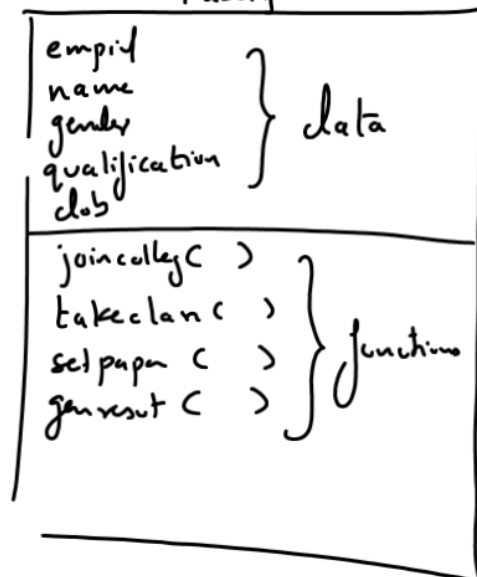 empid
name
gender
qualification
dob
data
joincolleg( )
takeclass( )
setpaper( )
genresut( )
functions